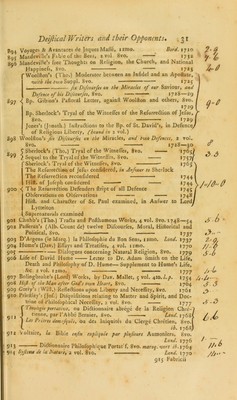 Deistical Writers and their Opponents. 31
894 Voyages & Avantures de Jaques Massé, 12mo. Bord. 1710 2-0
895 Mandeville's Fable of the Bees, 2 vol. 8vo. 1724
896 Mandeville's free Thoughts on Religion, the Church, and National
Happiness, 8vo. 1723
Woolston's (Tho.) Moderator between an Infidel and an Apostate,
with the two Suppl. 8vo. 1725
six Discourses on the Miracles of our Saviour, and
Defence of his Discourses, 8vo. 1728
897 Bp. Gibson's Pastoral Letter, against Woolston and others, 8vo.
1729
Bp. Sherlock's Tryal of the Witnesses of the Resurrection of Jesus,
8vo. 1729
Jones's (Jenkin) Instructions to the Bp. of St. David's, in Defence
of Religious Liberty, (bound in 2 vol.)
898 Woolston's six Discourses on the Miracles, and two Defences, in
8vo. 1728
Sherlock's (Tho.) Tryal of the Witnesses, 8vo. 1765
899 Sequel to the Tryal of the Witnesses, 8vo. 1757
Sherlock's Tryal of the Witnesses, 8vo. 1765
The Resurrection of Jesus considered, in Answer to Sherlock
The Resurrection reconsidered 1744
Hist. of Joseph considered 1744
900 The Resurrection Defenders stript of all Defence 1745
Observations on Observations
Hist. and Character of St. Paul examined, in Answer to Lord
Lyttelton
Supernaturals examined
901 Chubb's (Tho.) Tracts and Posthumous Works, 4 vol. 8vo. 1748-54
902 Passeran's (Alb. Comte de) twelve Discourses, Moral, Historical and
Political, 8vo. 1737
903 D'Argens (le Marq.) la Philosophie du Bon Sens, 1 tom. Lond. 1737
904 Hume's (Dav.) Essays and Treatises, 4 vol. 12mo. 1760
905 Dialogues concerning Natural Religion, 8vo. 1779
906 Life of David Hume—Letter to Dr. Adam Smith on the Life,
Death and Philosophy of D. Hume—Supplement to Hume's Life,
&c. 2 vol. 12mo. 1777
907 Bolingbroke's (Lord) Works, by Dav. Mallet, 5 vol. 4to. l.p. 1754
908 Hist. of the Man after God's own Heart, 8vo. 1764
909 Coxby's (Will.) Reflections upon Liberty and Necessity, 8vo. 1761
910 Priestley's (Jos.) Disquisitions relating to Matter and Spirit, and Doctrine
of Philosophical Necessity, 2 vol. 8vo. 1777
911 Theologie portative, ou Dictionnaire abrégé de la Religion Chrétienne,
par l'Abbé Bernier, 8vo. Lond. 1768
Les Prêtres demasqués, ou des Iniquités du Clergé Chrétien, 8vo.
ib. 1768
912 Voltaire, la Bible enfin expliquée par plusieurs Aumoniers, 8vo.
Lond. 1776
913 Dictionnaire Philosophique Portatif, 8vo. maroq. vert ib. 1764
914 Systeme de la Nature, 2 vol. 8vo. Lond. 1770
915 Fabricii